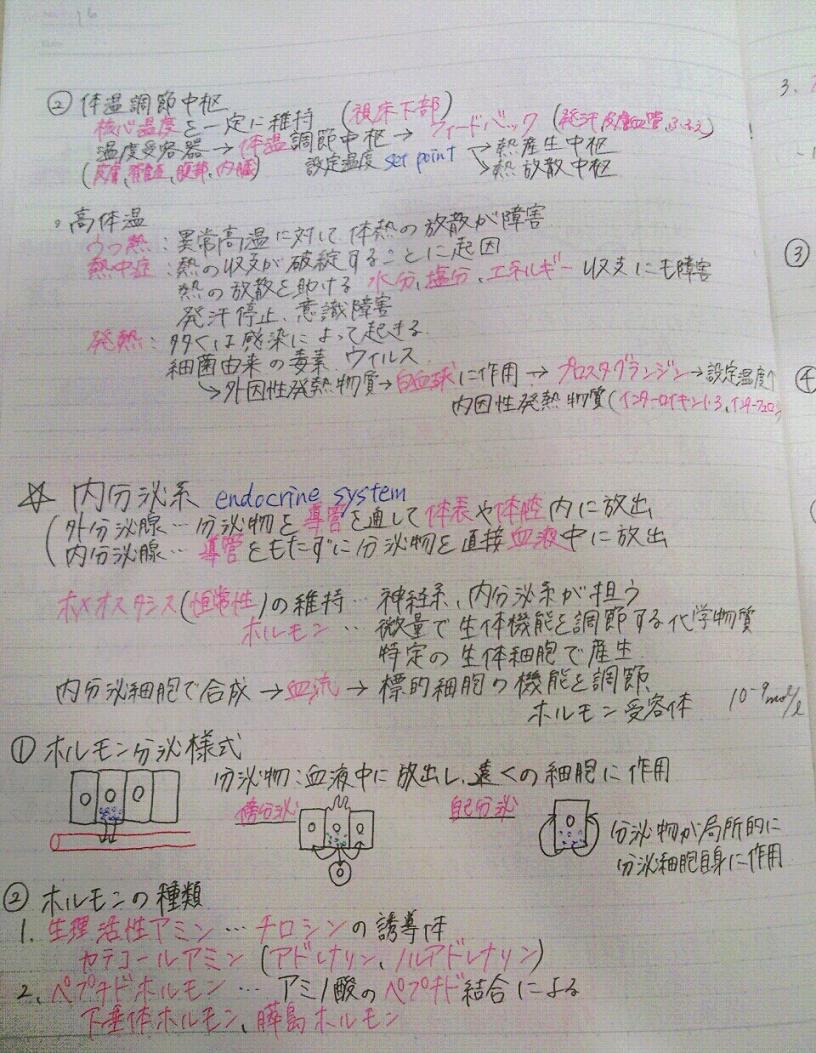 ② 体温調節中枢
核心温度を一定に維持 (視床下部)
温度受容器→体温調節中枢→フィードバック (発汗, 皮膚血管, ふるえ)
(皮膚, 脊髄, 腹部, 内臓) 設定温度 set point →熱産生中枢
→熱放散中枢
。高体温
うつ熱:異常高温に対して、体熱の放散が障害
熱中症:熱の収支が破綻することに起因
熱の放散を助ける水分、塩分、エネルギー収支にも障害
発汗停止、意識障害
発熱:多くは感染によって起きる
細菌由来の毒素、ウィルス
→外因性発熱物質→白血球に作用→プロスタグランジン→設定温度↑
内因性発熱物質(インターロイキン1,3,インターフェロン)
☆ 内分泌系 endocrine system
(外分泌腺…分泌物を導管を通して体表や体腔内に放出
内分泌腺…導管をもたずに分泌物を直接血液中に放出
ホメオスタシス(恒常性)の維持…神経系、内分泌系が担う
ホルモン…微量で生体機能を調節する化学物質
特定の生体細胞で産生
内分泌細胞で合成→血流→標的細胞の機能を調節
ホルモン受容体 10⁻⁹mol/l
① ホルモン分泌様式
分泌物:血液中に放出し、遠くの細胞に作用
傍分泌 自己分泌
分泌物が局所的に
分泌細胞自身に作用
② ホルモンの種類
1. 生理活性アミン…チロシンの誘導体
カテコールアミン(アドレナリン、ノルアドレナリン)
2、ペプチドホルモン…アミノ酸のペプチド結合による
下垂体ホルモン、膵島ホルモン
3.
③
④